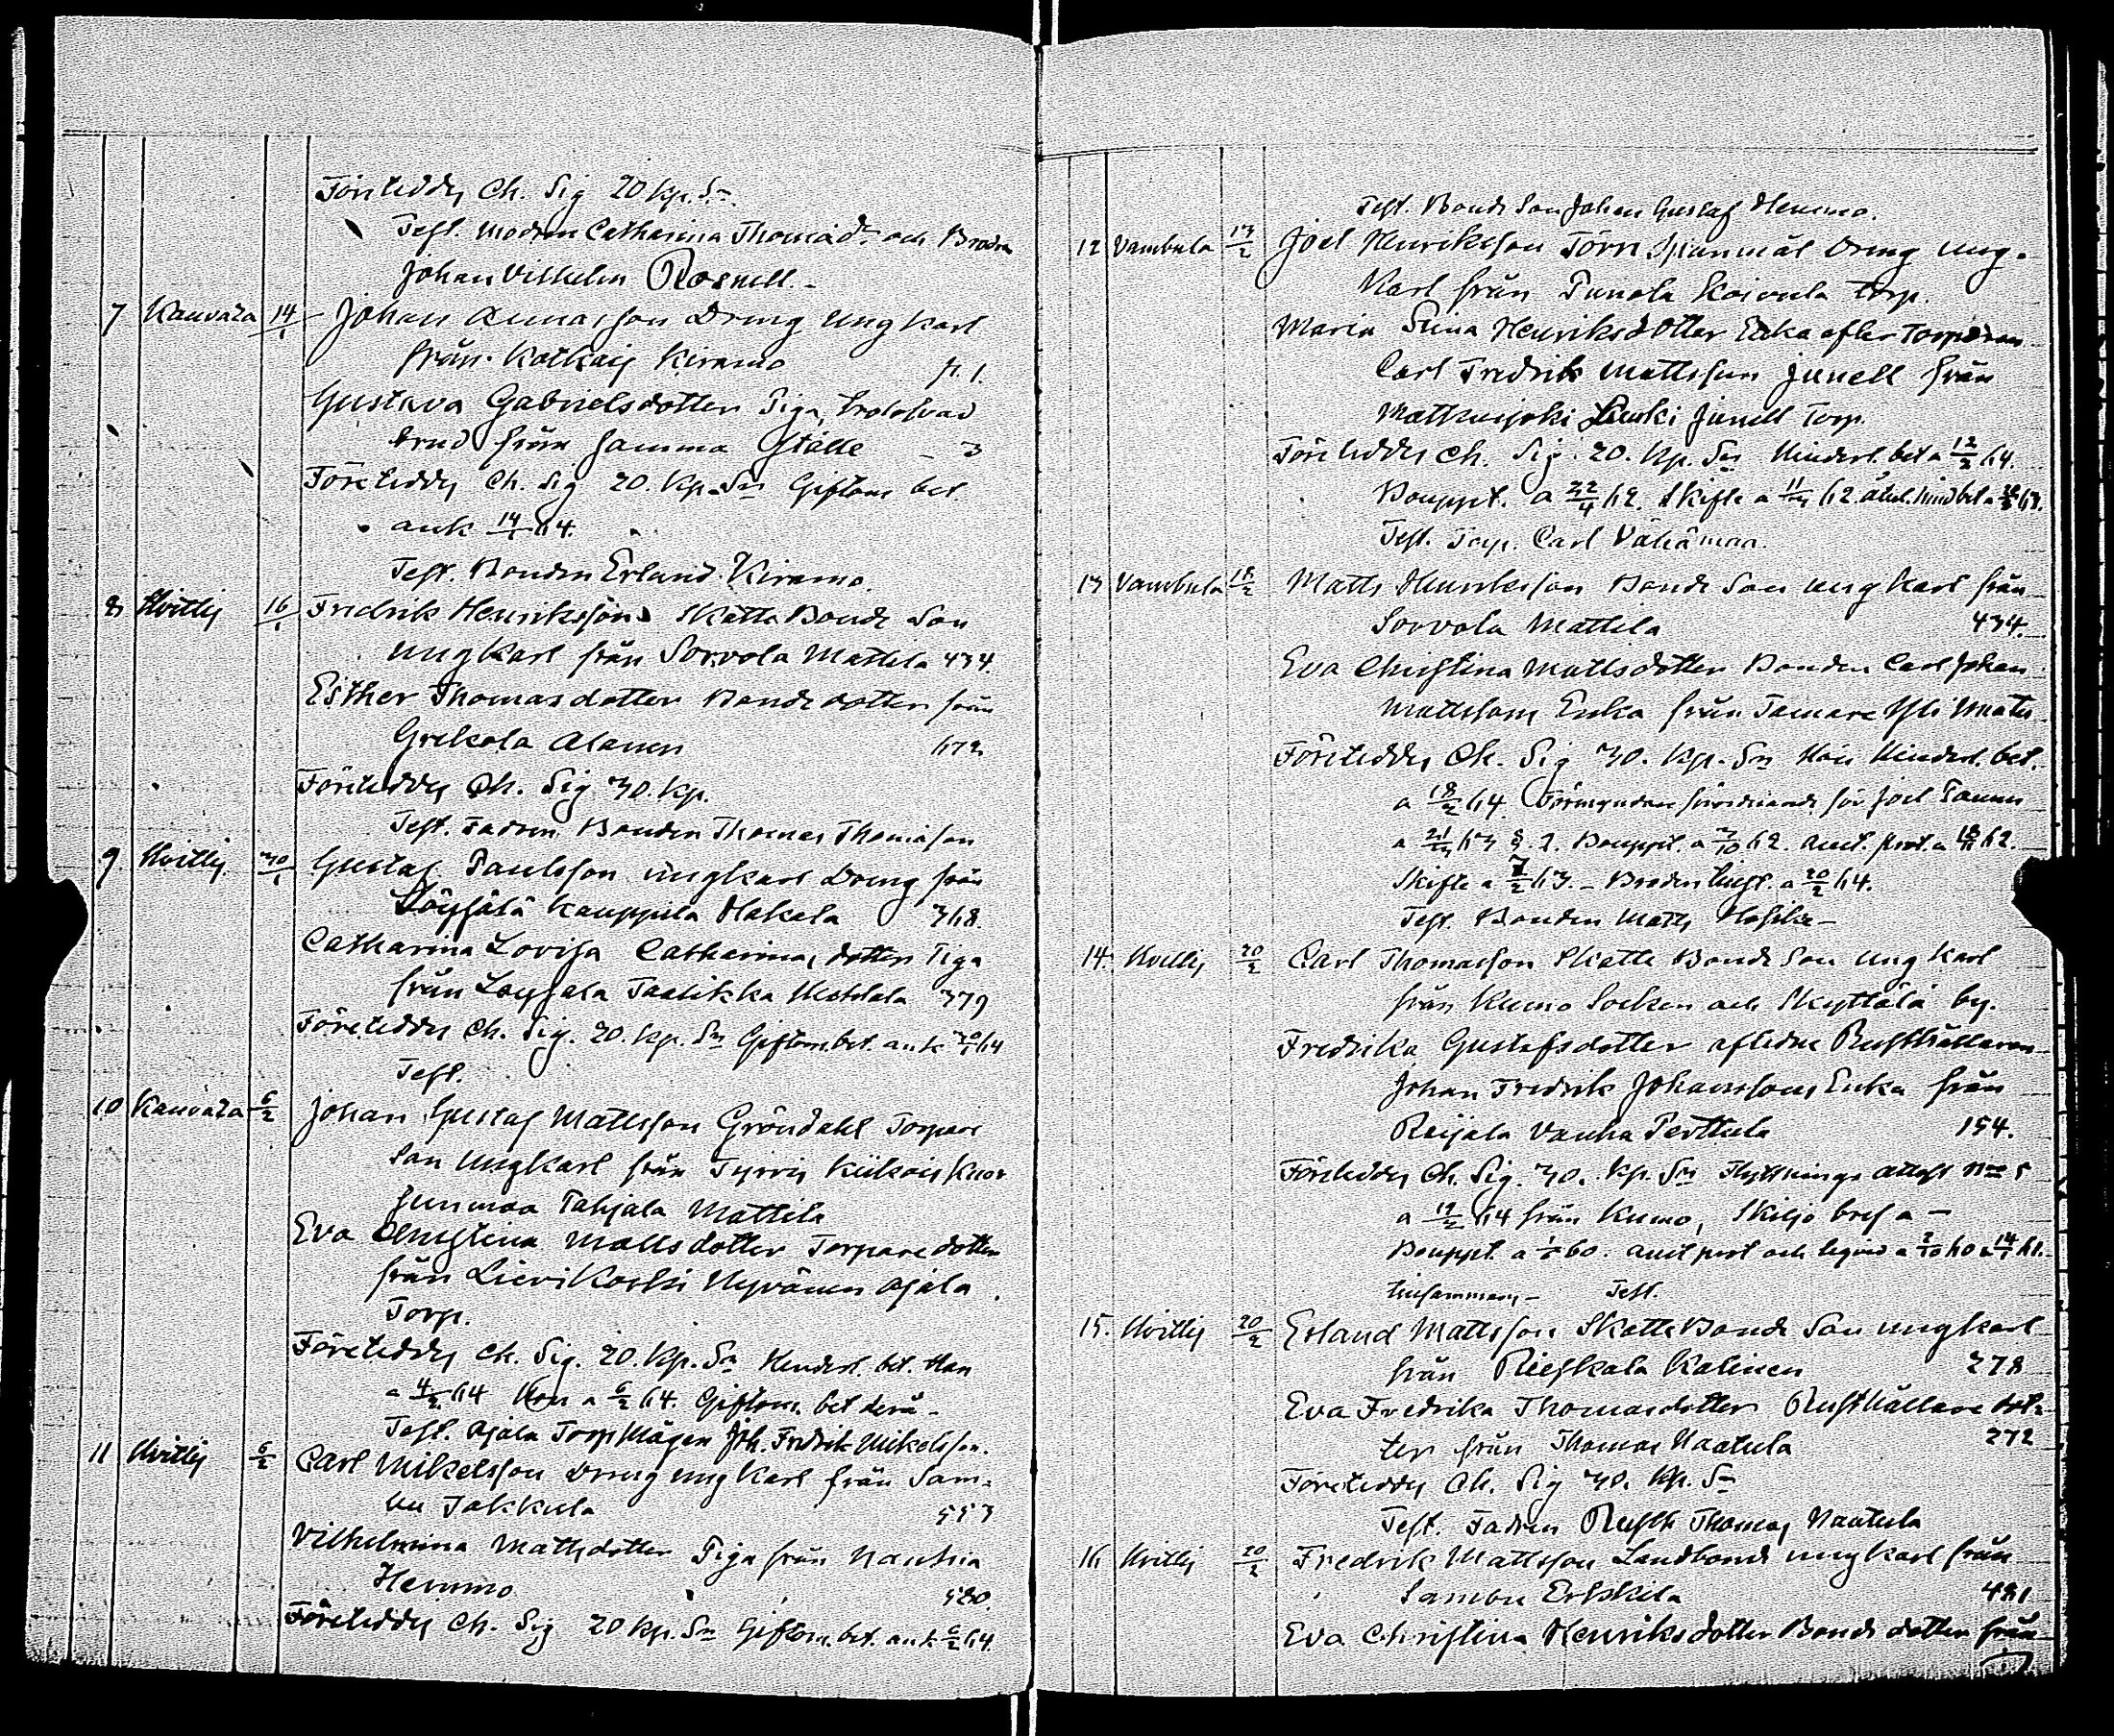 Företeddes Ch. Sig 20 kp. Sr.
Test. modren Catharina Thomad:r och Brodren
Johan Vilhelm Rosnell.-
7 Kauvaza 14/1 Johan Annasson Dräng Ungkarl
från Kotkais Kiramo p. 1.
Gustava Gabrielsdotter Piga trolofvad
brud från samma ställe - 3
Företeddes Ch. Sig 20. kp. Sr Giftom bet
ank 14/1 64.
Test. Bonden Erland Kiramo.
8 Hvittis 16/1 Fredrik Henriksson Skatte Bonde Son
Ungkarl från Sorvola Mattila 434.
Esther Thomasdotter Bonde dotter från
Grekola Alanen 672
Företeddes Ch. Sig 30. kp.
Test. Fadren Bonden Thomas Thomasson
9. Hvittis 30/1 Gustaf Paulsson ungkarl Dräng från
Löysälä Kauppila Hakala 368.
Catharina Lovisa Catharinasdotter Piga
från Loysala Taalikka 379
Företeddes Ch. Sig. 20. kp. Sr Giftom. bet. ank 30/1 64
Test.
10 Kauvaza 6/2 Johan Gustaf Mattsson Gröndahl Torpare
Son Ungkarl från Tyrvis Kiikois
Junmaa Pahjala Mattila
Eva Christina Mattsdotter Torpare dotter
från Lievikoski Hyvänen Ajala
Torp.
Företeddes Ch. Sig. 20. kp. Sr Hinderl. bet. Han
a 4/2 64 Hon a 6/2 64. Giftom. bet derå -
Test. Ajala Torp Mågen Joh. Fredrik Mikelsson.
11 Hvittis 6/2 Carl Mikelsson Dräng ungkarl från Sam-
bu Jakkula 553
Vilhelmina Mattsdotter Piga från Nanhia
Hemmo 580.
Företeddes Ch. Sig 20 kp. Sr Giftom. bet. ank 6/2 64.
Test. Bonde Son Johan Gustaf Hemmo.
12 Vambula 13/2 Joel Henriksson Törn Dräng ung-
Karl från Punola Koivula torp.
Maria Stina Henriksdotter Enka efter Torparen
Carl Fredrik Mattsson Junell från
Matkusjoki Junell Torp.
Företeddes Ch. Sig. 20. kp. Sr Hinderl. bet a 12/2 64.
Bouppt. a 22/4 62. Skifte a 62
Test. Torp. Carl Vähämaa.
13 Vambula 18/2 Matts Henriksson Bonde Son ungkarl från
Sorvola Mattila 434.
Eva Christina Mattsdotter Bonden Carl Johan
Mattssons Enka från Tamare Yli
Företeddes Ch. Sig 30. kp. Sr Hon Hinderl. bet.
a 18/2 64. Förmyndare förordnande för Joel
a 63 § 2. Bouppt. a 3/10 62. Auct. prot. a 62.
Skifte a 7/2 63. - Brodren a 20/2 64.
Test. Bonden Matts -
14. Hvittis 20/2 Carl Thomasson Skatte Bonde Son ungkarl
från Kumo Socken och Skyttälä by.
Fredrika Gustafsdotter afledne Rusthållaren
Johan Fredrik Johanssons Enka från
Reijala Vanha Perttula 154.
Företeddes Ch. Sig. 30. kp. Sr Flyttnings attest No 5
a 19/2 64 från Kumo, Skiljo bref a -
Bouppt. a 60. auct prot och a 2/10 60 a 14/1 61.
tinsammans - Test.
15. Hvittis 20/2 Erland Mattsson Skatte Bonde Son ungkarl
från Rieskala Kalinen 278
Eva Fredrika Thomasdotter Rusthållare dot-
ter från Thomas Naatula 272
Företeddes Ch. Sig 30. kp. Sr
Test. Fadren Rusth Thomas Naatula
16 Hvittis 20/2 Fredrik Mattsson Landbonde ungkarl från
Sambu Erkkila 481
Eva Christina Henriksdotter Bonde dotter från